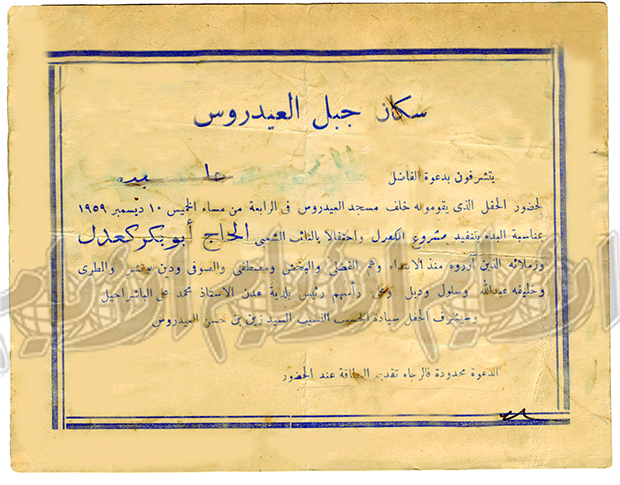 سكان جبل العيدروس
يتشرفون بدعوة الفاضل
لحضور الحفل الذى يقومونه خلف مسجد العيدروس فى الرابعة من مساء الخميس ١٠ ديسمبر ١٩٥٩
بمناسبة البدء بتنفيذ مشروع الكهرل واحتفالا بالنائب الشعبى الحاج أبوبكر كعدل
وزملائه الذين آزروه منذ الابتداء وهم الفضلى والبخش ومصطفى والصوفى ودبن والمطرى
وخليفه عبدالله وسلول وديل وعلى رأسهم رئيس بلدية عدن الاستاذ محمد على الباشراحيل
وسيشرف الحفل سيادة الحسيب النسيب السيد زين بن حسن العيدروس
الدعوة محدودة فالرجاء تقديم البطاقة عند الحضور
الأيام الأيام الأيام